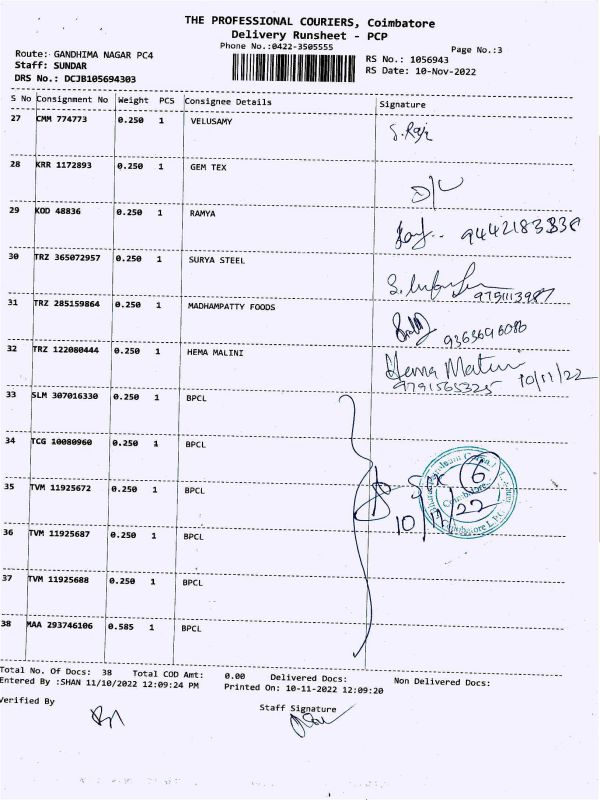 THE PROFESSIONAL COURIERS, Coimbatore
Delivery Runsheet - PCP
Phone No.:0422-3505555
Page No.:3
Route: GANDHIMA NAGAR PC4
Staff: SUNDAR
DRS No.: DCJB105694303
RS No.: 1056943
RS Date: 10-Nov-2022
S No Consignment No Weight PCS Consignee Details Signature
27 CMM 774773 0.250 1 VELUSAMY
28 KRR 1172893 0.250 1 GEM TEX
29 KOD 48836 0.250 1 RAMYA
30 TRZ 365072957 0.250 1 SURYA STEEL
9791113987
31 TRZ 285159864 0.250 1 MADHAMPATTY FOODS
9363696086
32 TRZ 122080444 0.250 1 HEMA MALINI
Hema Malini
9791565325 10/11/22
33 SLM 307016330 0.250 1 BPCL
34 TCG 10080960 0.250 1 BPCL
35 TVM 11925672 0.250 1 BPCL
10/11/22
Coimbatore
36 TVM 11925687 0.250 1 BPCL
37 TVM 11925688 0.250 1 BPCL
38 MAA 293746106 0.585 1 BPCL
Total No. Of Docs: 38 Total COD Amt: 0.00 Delivered Docs: Non Delivered Docs:
Entered By :SHAN 11/10/2022 12:09:24 PM Printed On: 10-11-2022 12:09:20
Verified By
Staff Signature